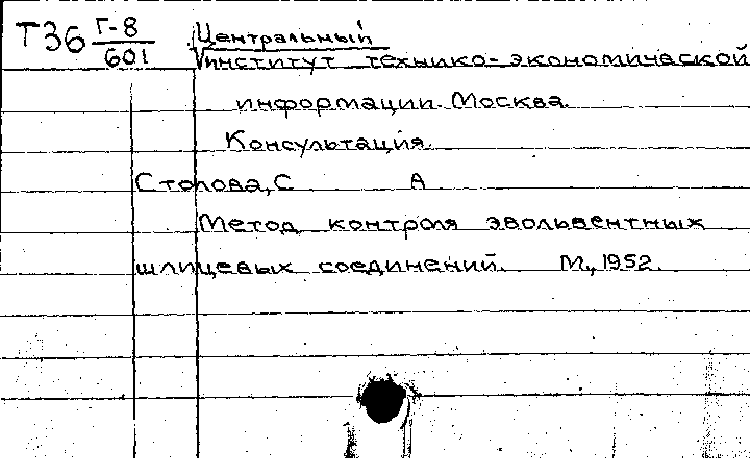 Т36 Г-8/601 Центральный
институт технико-экономической
информации. Москва.
Консультация.
Стопова, С А
Метод контроля эвольвентных
шлицевых соединений. М., 1952.